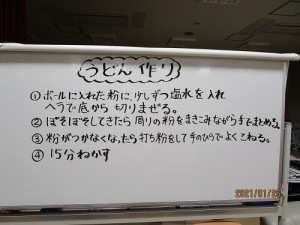 うどん作り
①ボールに入れた粉に、少しずつ塩水を入れ
ヘラで底から切りまぜる。
②ぼそぼそしてきたら周りの粉をまきこみながら手でまとめる。
③粉がつかなくなったら打ち粉をして手のひらでよくこねる。
④15分ねかす
2021/01/28